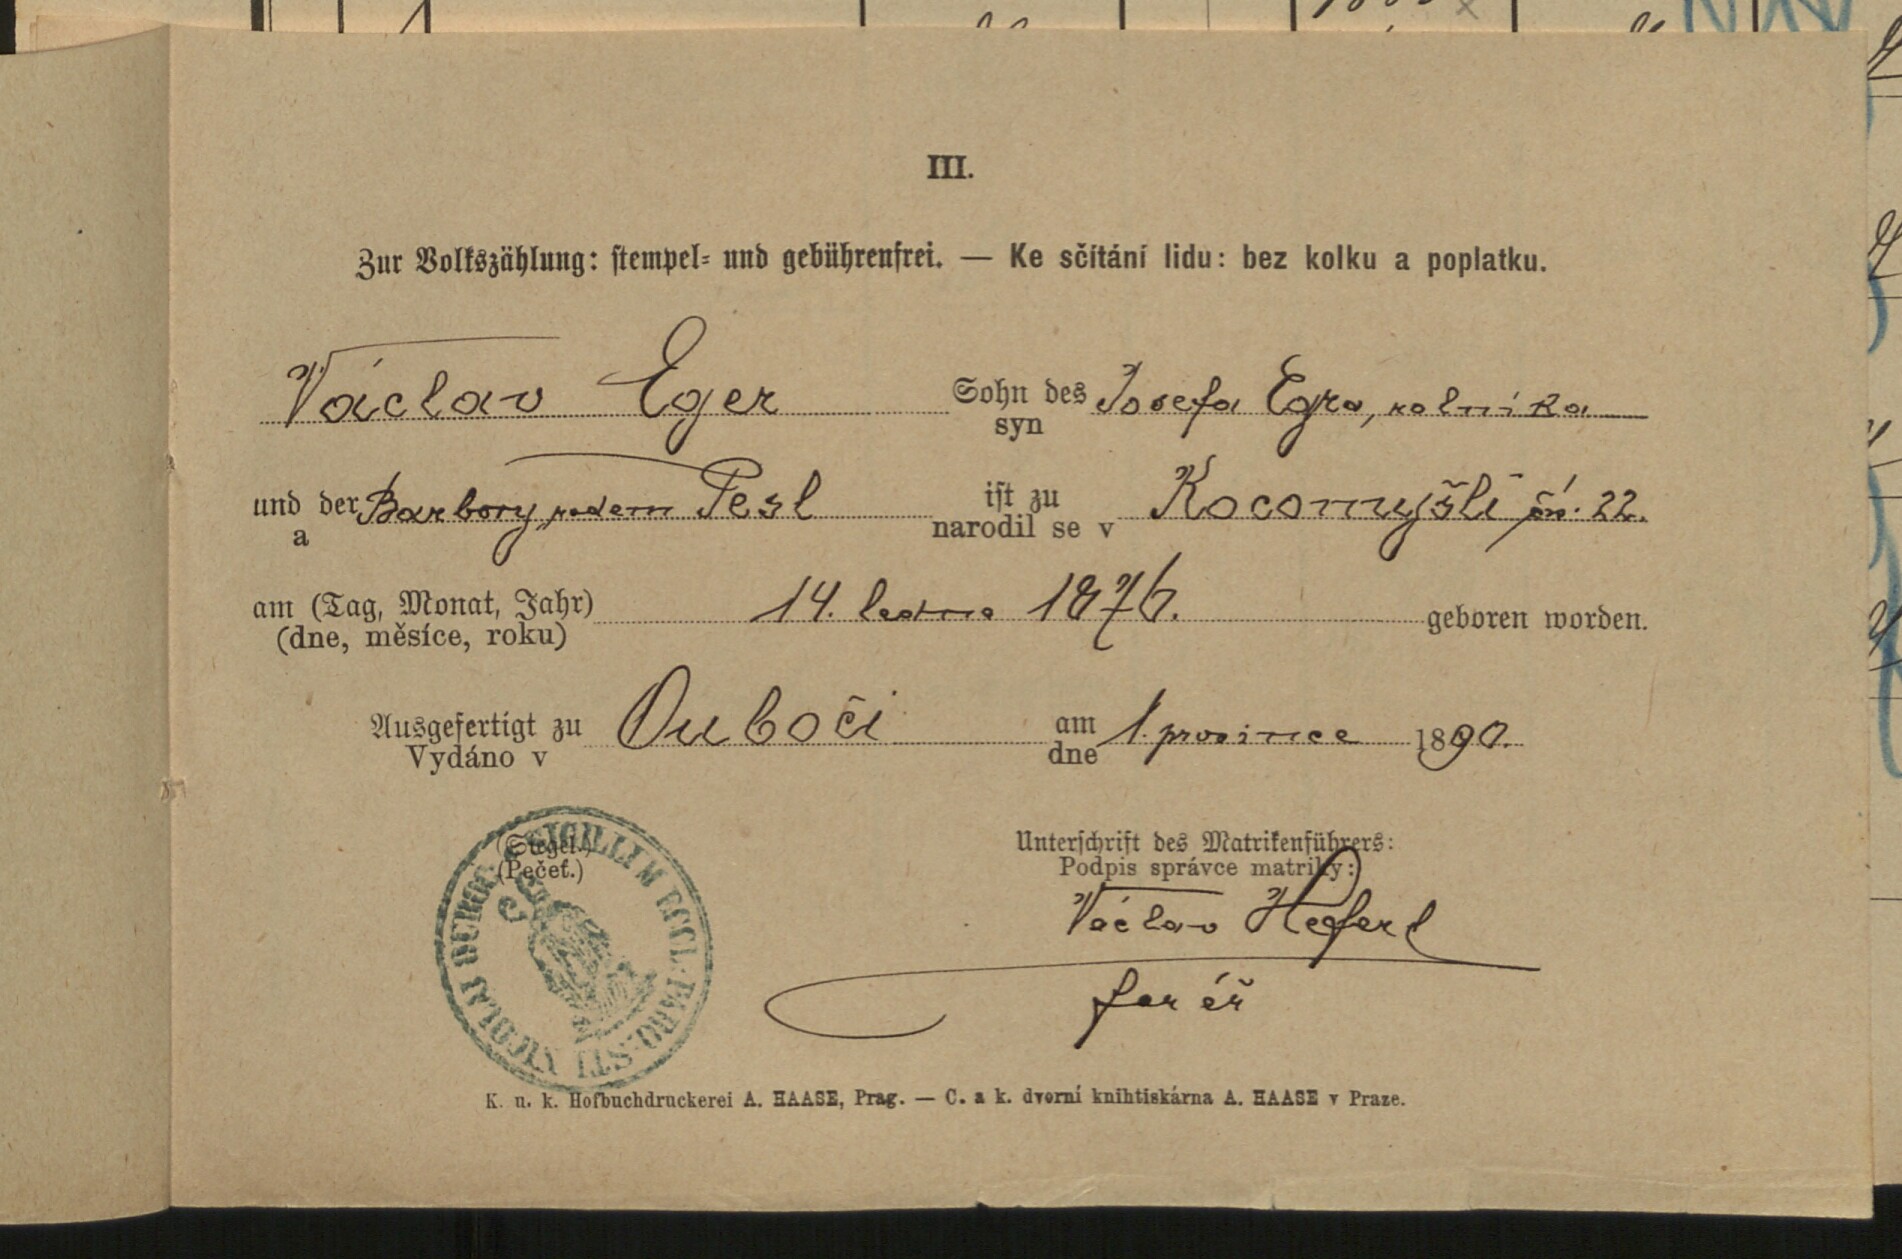 III.
Zur Volkszählung: stempel- und gebührenfrei. — Ke sčítání lidu: bez kolku a poplatku.
Václav Eger Sohn des Josefa Egra, rolníka
syn
und der Barbory, rodem Pesl ist zu Kocomyšli čís. 22.
a narodil se v
am (Tag, Monat, Jahr) 14. ledna 1876. geboren worden.
(dne, měsíce, roku)
Ausgefertigt zu Ouboči am 1. prosince 1890.
Vydáno v dne
(Siegel.) Unterschrift des Matrikenführers:
(Pečeť.) Podpis správce matriky:
SIGILLUM ECCL. PARO. STI NICOLAI
Václav
farář
K. u. k. Hofbuchdruckerei A. HAASE, Prag. — C. a k. dvorní knihtiskárna A. HAASE v Praze.